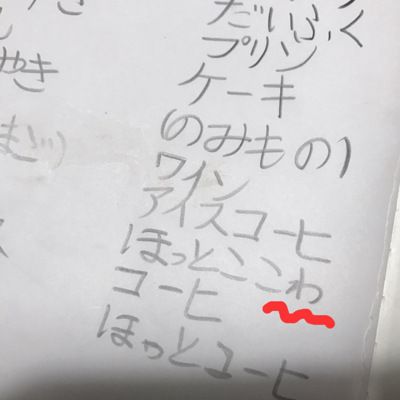 やき
だいふく
プリン
ケーキ
のみもの)
ワイン
アイスコーヒ
ほっとここわ
コーヒ
ほっとコーヒ